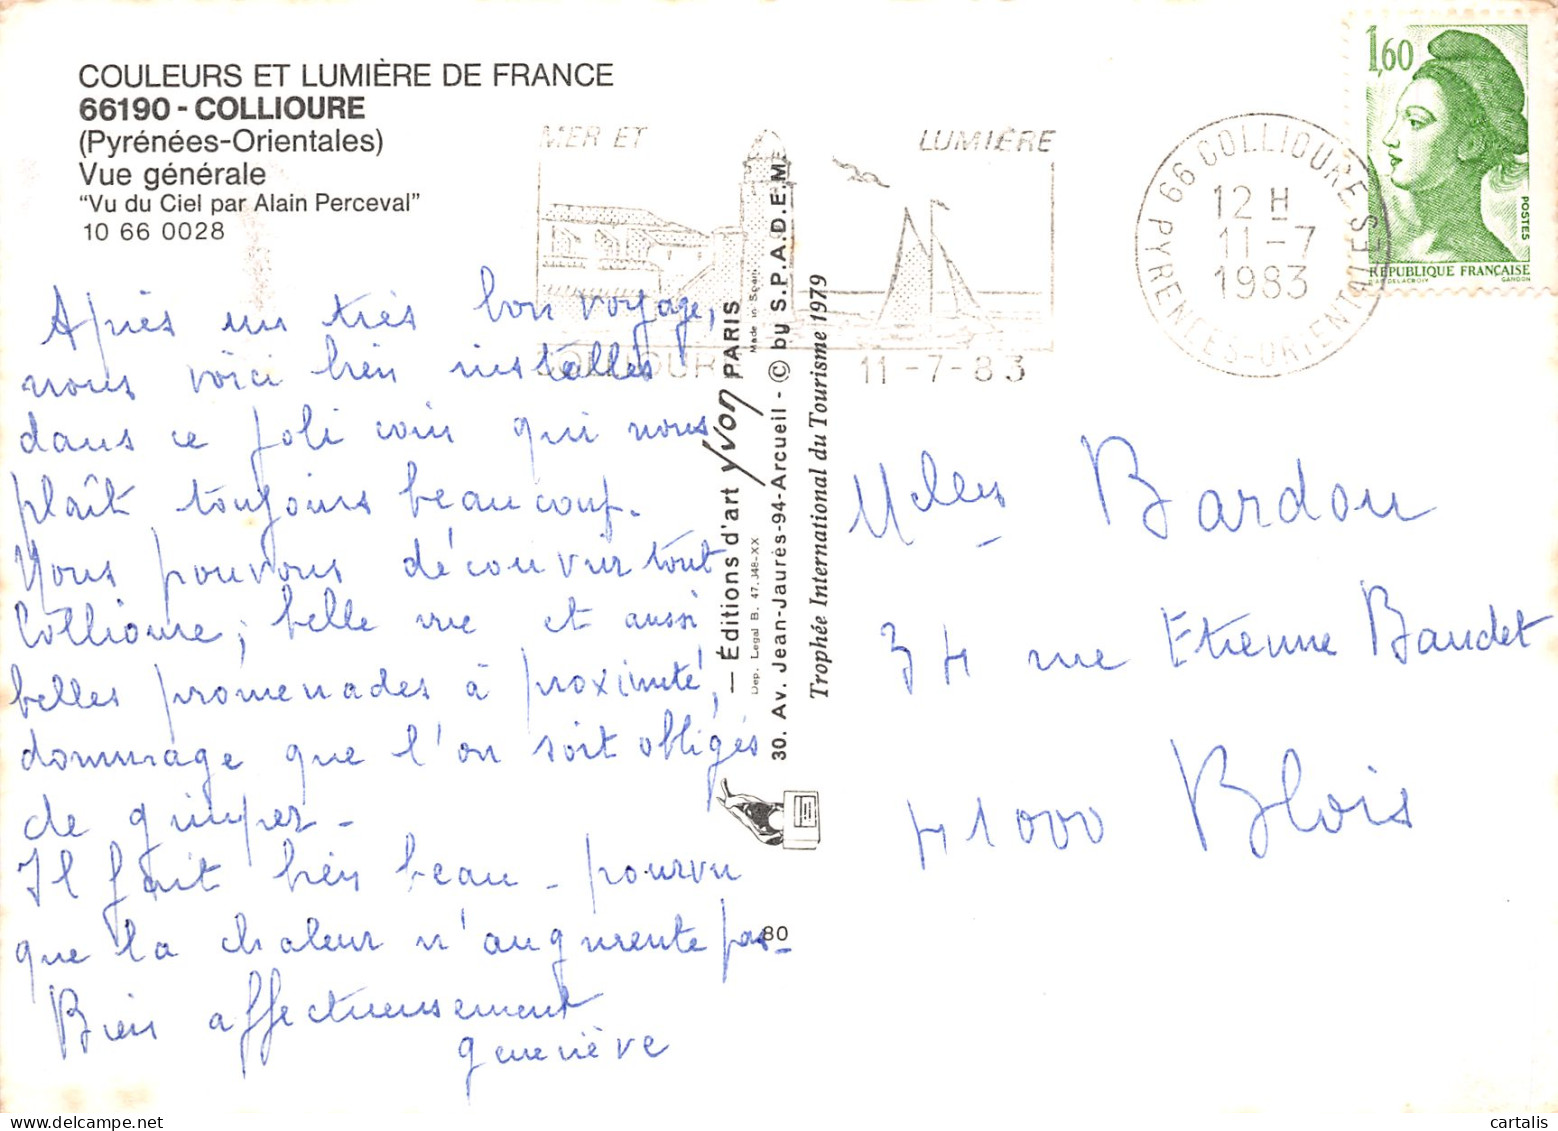 COULEURS ET LUMIÈRE DE FRANCE
66190 - COLLIOURE
(Pyrénées-Orientales)
Vue générale
"Vu du Ciel par Alain Perceval"
10 66 0028
MER ET LUMIÈRE
COLLIOURE
11-7-83
66 COLLIOURE
12 H
11-7
1983
PYRENEES-ORIENTALES
1,60
POSTES
RÉPUBLIQUE FRANÇAISE
D'AP. DELACROIX GANDON
Après un très bon voyage,
nous voici bien installés
dans ce joli coin qui nous
plaît toujours beaucoup.
Nous pouvons découvrir tout
Collioure, belle vue et aussi
belles promenades à proximité,
dommage que l'on soit obligés
de grimper -
Il fait bien beau - pourvu
que la chaleur n'augmente pas -
Bien affectueusement
geneviève
— Éditions d'art yvon PARIS
Dep. Legal B. 47.348-XX
Made in Spain
30. Av. Jean-Jaurès-94-Arcueil - © by S.P.A.D.E.M.
Trophée International du Tourisme 1979
80
Melles Bardou
34 rue Etienne Baudet
41000 Blois
cartalis